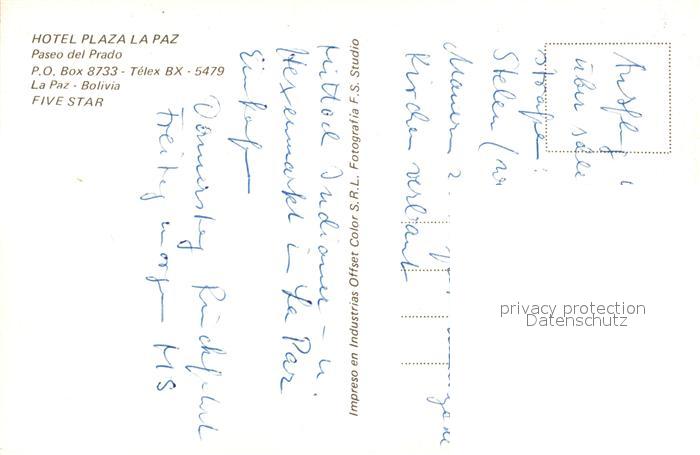 HOTEL PLAZA LA PAZ
Paseo del Prado
P.O. Box 8733 - Télex BX - 5479
La Paz - Bolivia
FIVE STAR
Impreso en Industrias Offset Color S.R.L. Fotografía F.S. Studio
über
Stelen
Mauern
Kirchen verbaut
Mittod Indianer - u
Hexenmarkt in La Paz
Einkauf
Donnerstag Rückfahrt
Freitag morgen MS
privacy protection
Datenschutz